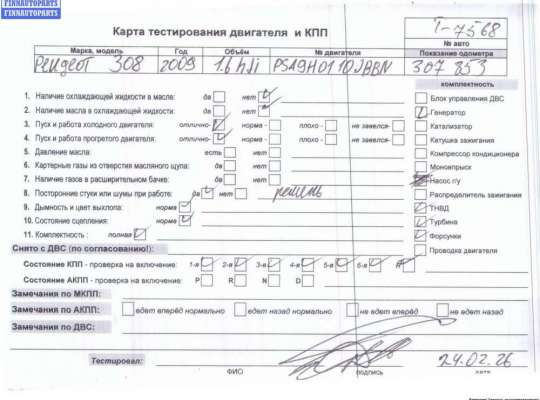 FINNAUTOPARTS
FINNAUTOPARTS
Карта тестирования двигателя и КПП
I-7568
№ авто
Марка, модель Год Объём № двигателя Показание одометра
Peugeot 308 2009 1.6 hdi 307 853
комплектность
1. Наличие охлаждающей жидкости в масле: да нет
2. Наличие масла в охлаждающей жидкости: да нет
3. Пуск и работа холодного двигателя: отлично- норма - плохо - не завелся-
4. Пуск и работа прогретого двигателя: отлично- норма - плохо - не завелся-
5. Давление масла: есть нет
6. Картерные газы из отверстия масляного щупа: да нет
7. Наличие газов в расширительном бачке: да нет
8. Посторонние стуки или шумы при работе: да нет ремень
9. Дымность и цвет выхлопа: норма
10. Состояние сцепления: норма
11. Комплектность : полная
Блок управления ДВС
Генератор
Катализатор
Катушка зажигания
Компрессор кондиционера
Моновпрыск
Насос г/у
Распределитель зажигания
ТНВД
Турбина
Форсунки
Проводка двигателя
Снято с ДВС (по согласованию!):
Состояние КПП - проверка на включение: 1-я 2-я 3-я 4-я 5-я 6-я R
Состояние АКПП - проверка на включение: P R N D
Замечания по МКПП:
Замечания по АКПП: едет вперёд нормально едет назад нормально не едет вперёд не едет назад
Замечания по ДВС:
Тестировал:
24.02.26
ФИО подпись дата